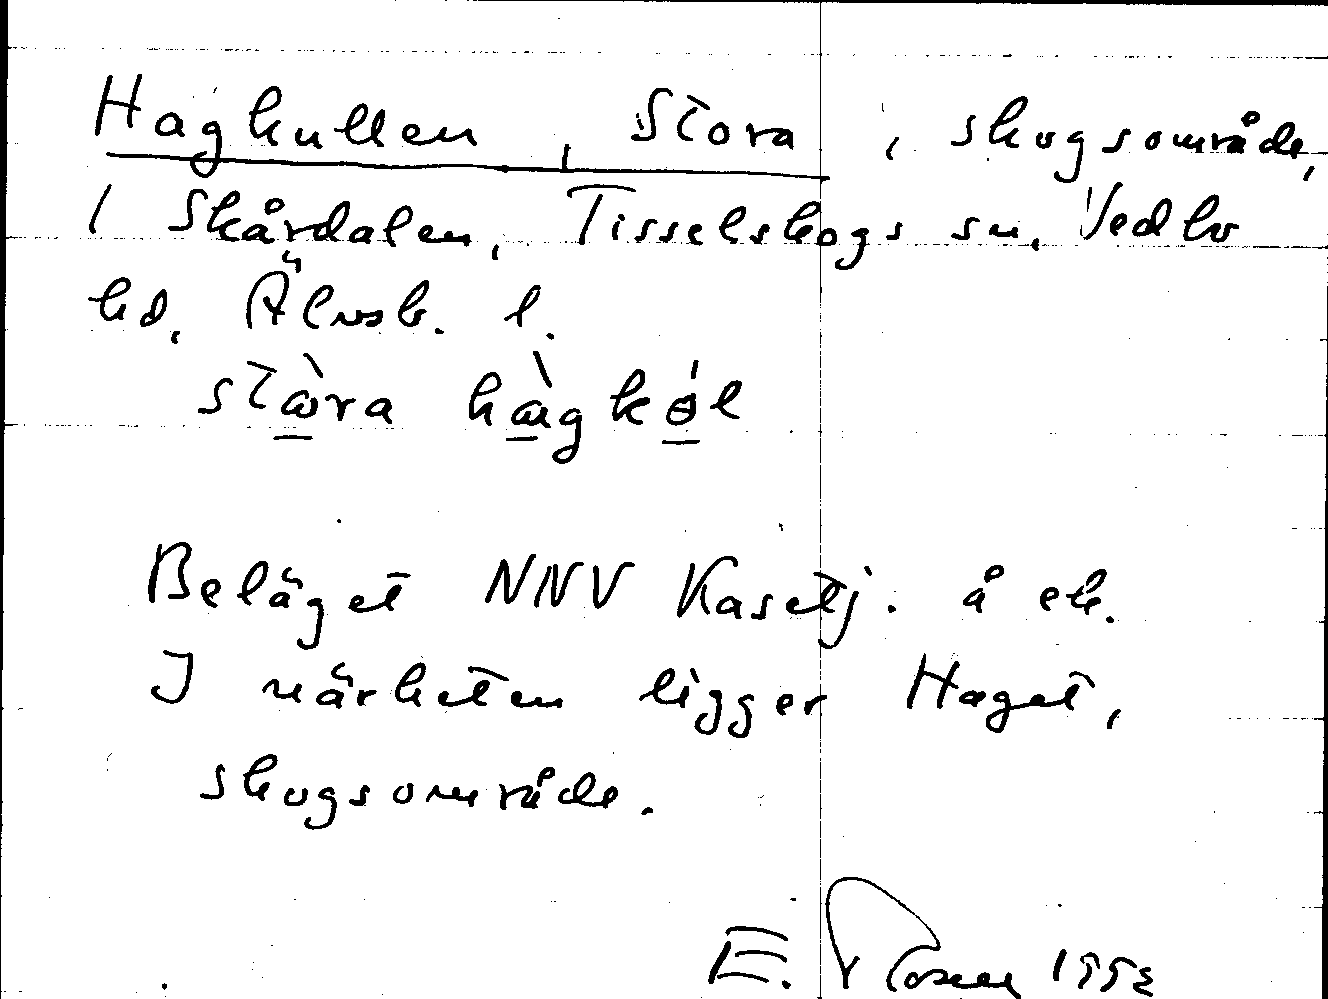 Hagkullen, Stora, skogsområde,
I Skårdalen, Tisselskogs sn, Vedbo
hd, Älvsb. l.
stωra hagkəl
Beläget NNV Kasetj. å ek.
I närheten ligger Haget,
skogsområde.
E.